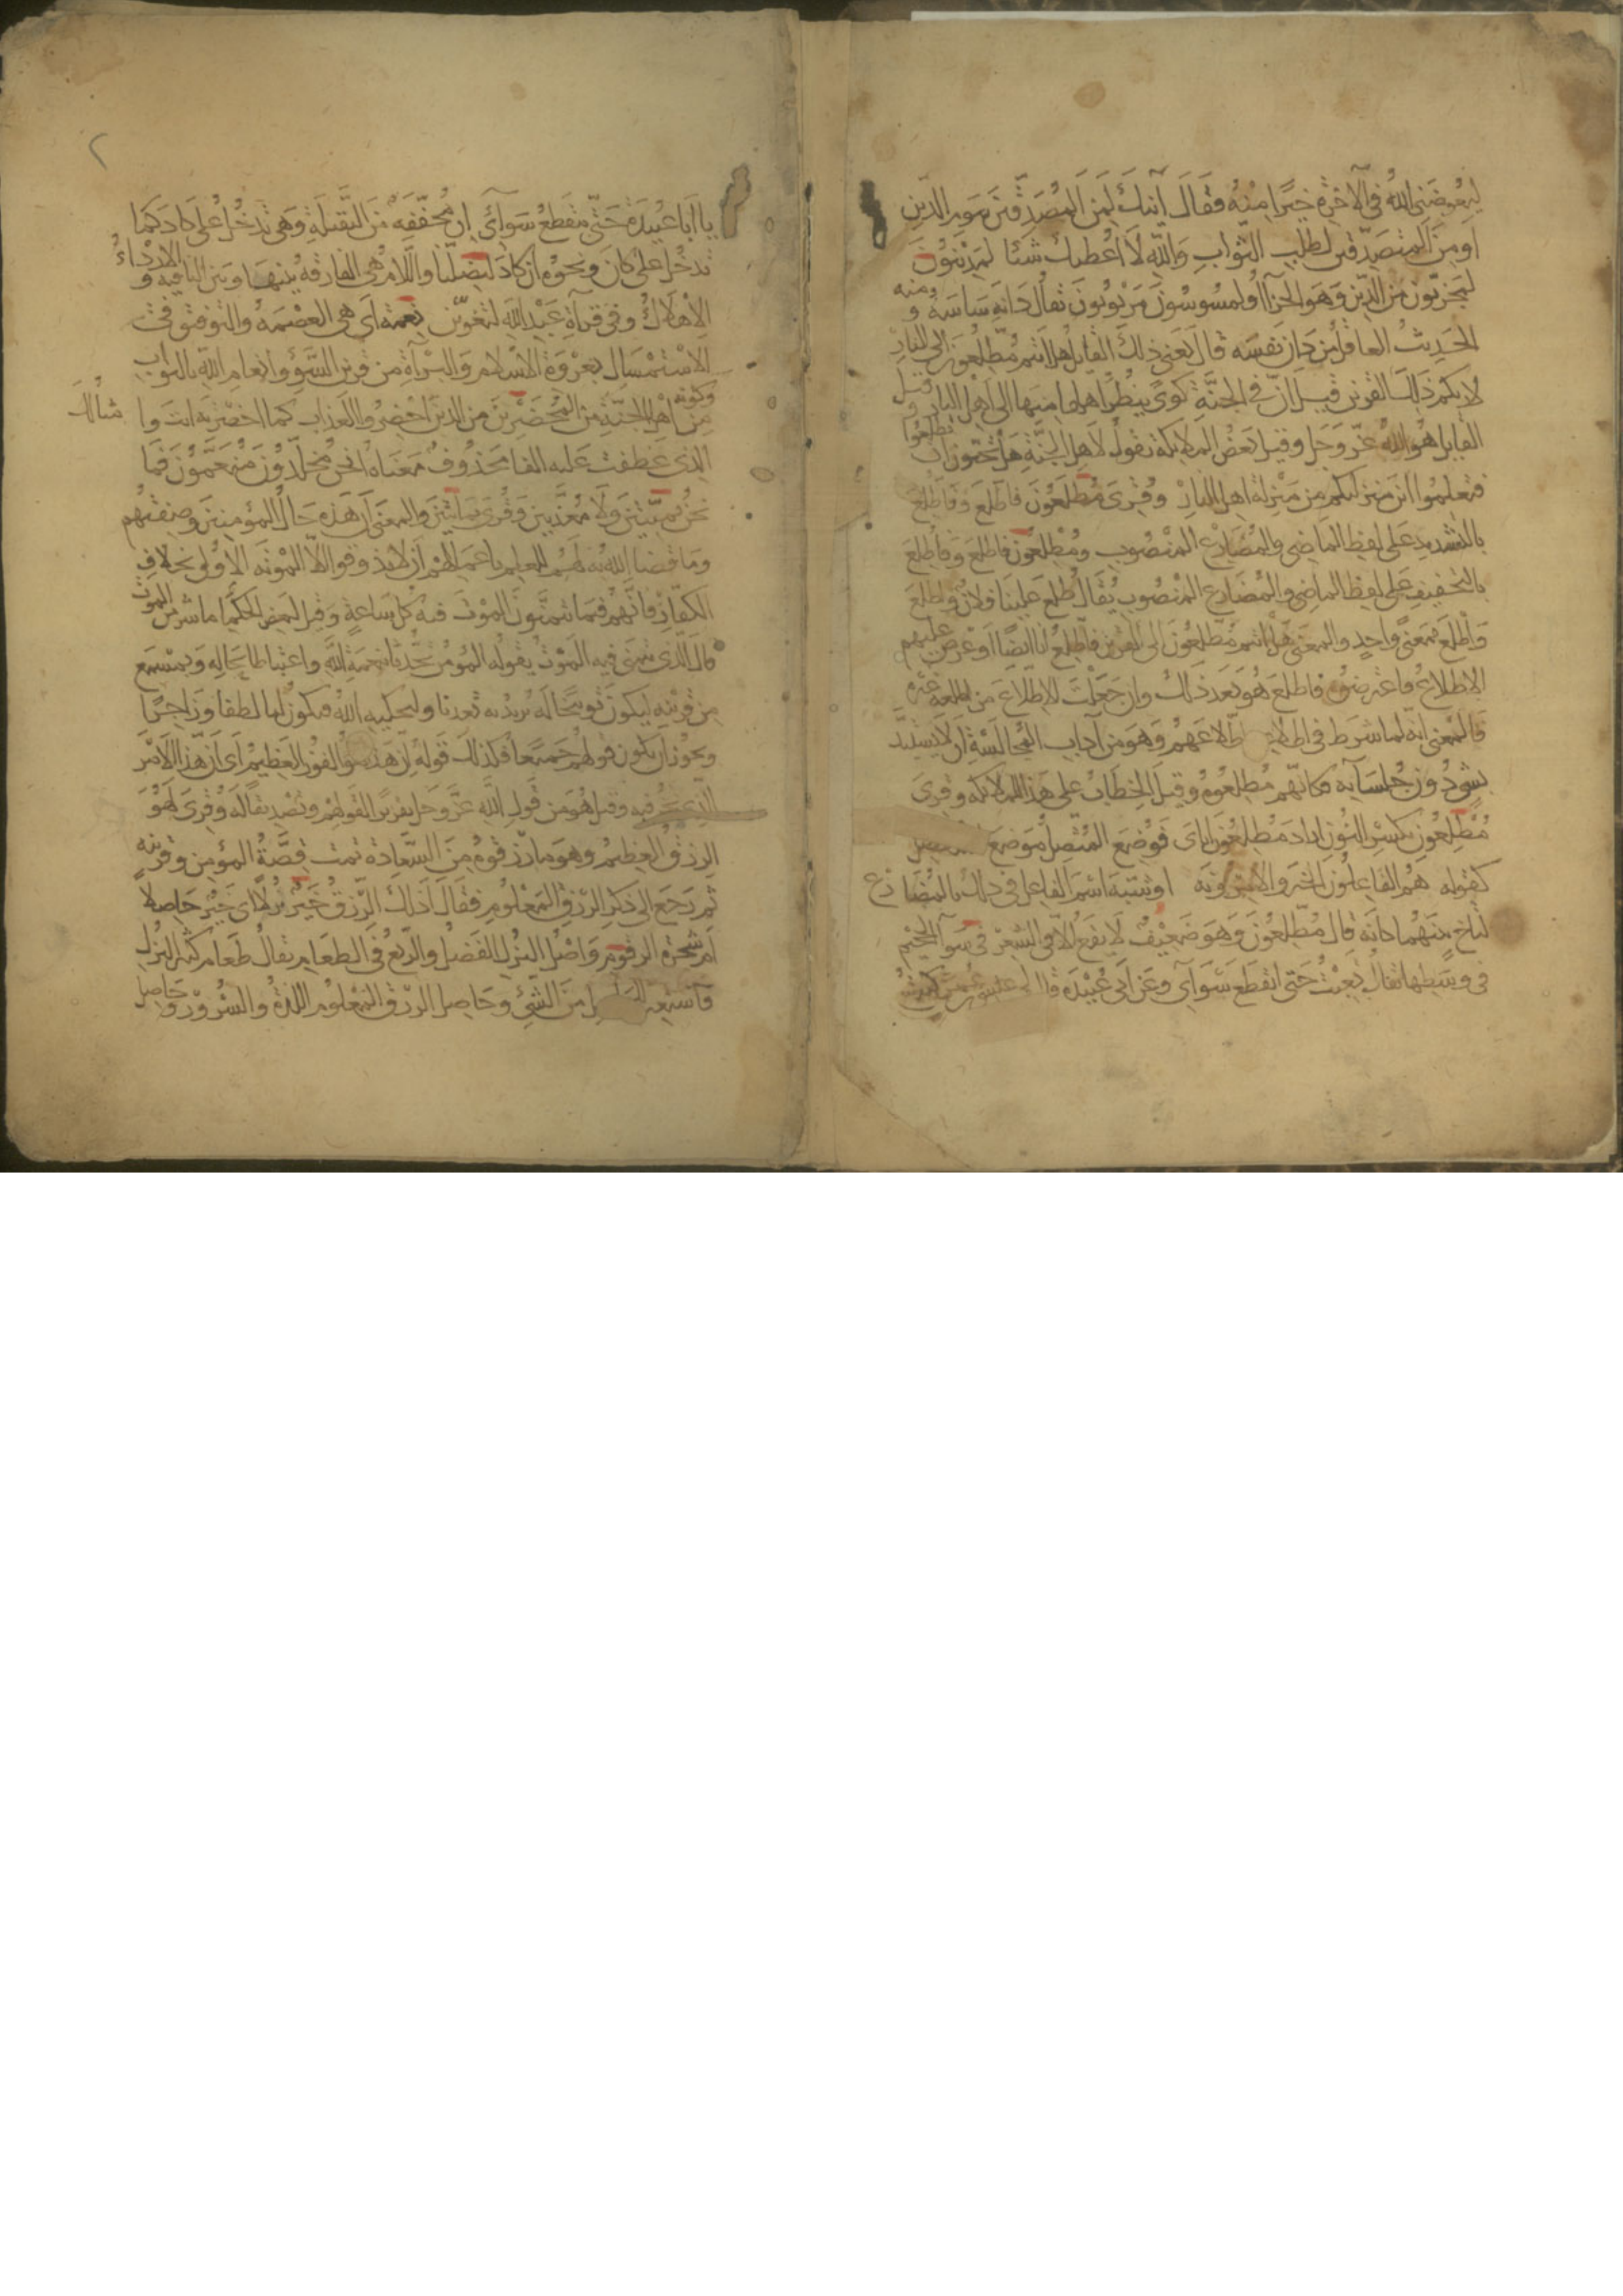 ليعوضني الله في الآخرة خيرا منه فقال أئنك لمن المصدقين بيوم الدين
او من المتصدقين لطلب الثواب والله لا اعطيك شيئا لمدينون
لمجزيون من الدين وهو الجزاا او لمسوسون مربوبون يقال دانه ساسه ومنه
الحديث العاقل من دان نفسه قال يعني ذلك القايل هل انتم مطلعون الى النار
لاريكم ذلك القرين قيل ان في الجنة كوى ينظر اهلها منها الى اهل النار وقيل
القايل هو الله عز وجل وقيل بعض الملايكة يقول لاهل الجنة هل تحبون ان تطلعوا
فتعلموا اين منزلتكم من منزلة اهل النار وقرى مطلعون فاطلع وفاطلع
بالتشديد على لفظ الماضي والمضارع المنصوب ومطلعون فاطلع وفاطلع
بالتخفيف على لفظ الماضي والمضارع المنصوب يقال طلع علينا فلان واطلع
واطلع بمعنى واحد والمعنى هل انتم مطلعون الى القرين فاطلع انا ايضا او عرض عليهم
الاطلاع فاعترضوه فاطلع هو بعد ذلك وان جعلت الاطلاع من اطلعه غيره
فالمعنى انه لما شرط في اطلاعه اطلاعهم وهو من آداب المجالسة ان لا يستبد
بشي دون جلسايه فكانهم مطلعوه وقيل الخطاب على هذا للملايكه وقرى
مطلعون بكسر النون اراد مطلعون اياي فوضع المتصل موضع المنفصل
كقوله هم الفاعلون الخير والآمرونه او شبه اسم الفاعل في ذلك بالمضارع
لتاخ بينهما كانه قال مطلعون وهو ضعيف لا يقع الا في الشعر في سواء الجحيم
في وسطها يقال تعبت حتى انقطع سوآي وعن ابي عبيدة قال لي عيسى بن عمر كنت اكتب
يا ابا عبيدة حتى ينقطع سوآي ان مخففه من الثقيلة وهي تدخل على كاد كما
تدخل على كان ونحوه ان كاد ليضلنا واللام هي الفارقه بينها وبين النافيه والارداء
الاهلاك وفي قرآة عبد الله لتغوين نعمة ربي هي العصمة والتوفيق في
الاستمساك بعروة الاسلام والبرآة من قرين السوء او انعام الله بالثواب
وكونه من اهل الجنة من المحضرين من الذين احضروا العذاب كما احضرته انت وامثالك
الذي عطفت عليه الفا محذوف معناه انحن مخلدون منعمون فما
نحن بميتين ولا معذبين وقرى بمايتين والمعنى ان هذه حال المؤمنين وصفتهم
وما قضا الله به لهم للعلم باعمالهم ان لا يذوقوا الا الموته الاولى بخلاف
الكفار فانهم فيما يتمنون الموت فيه كل ساعة وقيل لبعض الحكما ما شر من الموت
قال الذي يتمنى فيه الموت يقوله المؤمن تحدثا بنعمة الله واغتباطا بحاله وبمسمع
من قرينه ليكون توبيخا له يزيد به تعذبا وليحكيه الله فيكون لنا لطفا وزاجرا
ويجوز ان يكون قولهم جميعا وكذلك قوله ان هذا لهو الفوز العظيم اي ان هذا الامر
الذي نحن فيه وقيل هو من قول الله عز وجل تقريرا لقولهم وتصديقا له وقرى لهو
الرزق العظيم وهو ما رزقوه من السعادة تمت قصة المؤمن وقرينه
ثم رجع الى ذكر الرزق المعلوم فقال اذلك الرزق خير نزلا اي خير حاصلا
ام شجرة الزقوم واصل النزل الفضل والريع في الطعام يقال طعام كثير النزل
فاستعير للحاصل من الشيء وحاصل الرزق المعلوم اللذة والسرور وحاصل